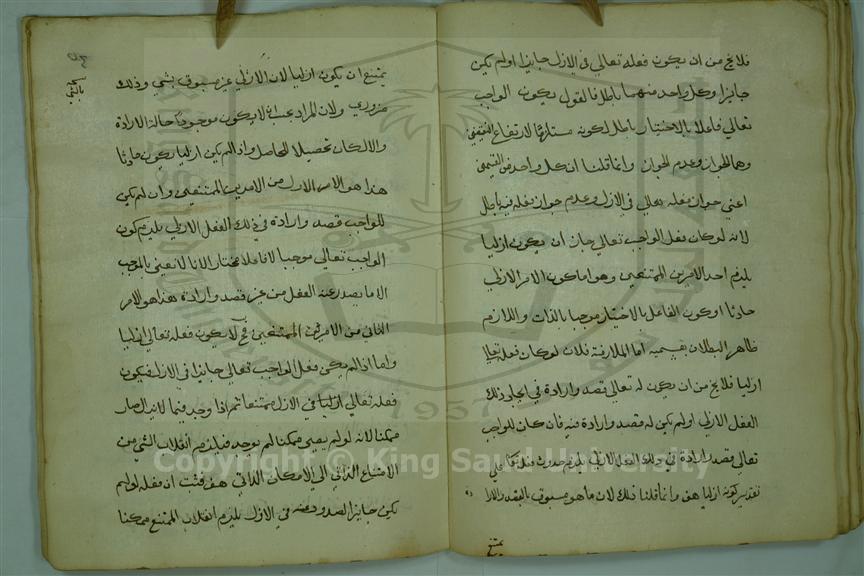 فلا يخ من ان يكون فعله تعالى في الازل جايزا اولم يكن
جايزا وكل واحد منهما باطل فالقول بكون الواجب
تعالى فاعلا بالاختيار باطل لكونه مستلزما لارتفاع النقيضين
وهما الجواز وعدم الجواز وانما قلنا ان كل واحد من القسمين
اعني جواز فعله تعالى في الازل وعدم جواز فعله فيه باطل
لانه لو كان فعل الواجب تعالى جاز ان يكون ازليا
يلزم احد الامرين الممتنعين وهو اما كون الامر الازلي
حادثا او كون الفاعل بالاختيار موجبا بالذات واللازم
ظاهر البطلان بقسميه اما الملازمة فلان لو كان فعله تعالى
ازليا فلا يخ من ان يكون له تعالى قصد وارادة في ايجاد ذلك
الفعل الازلي اولم يكن له قصد وارادة فيه فان كان للواجب
تعالى قصد وارادة في ذلك الفعل الازلي يلزم حدوث فعله تعالى على
تقدير كونه ازليا هف وانما قلنا ذلك لان ما هو مسبوق بالقصد والارادة
يمتنع
يمتنع ان يكون ازليا لان الازلي غير مسبوق بشيء وذلك
ضروري ولان المراد يجب ان لا يكون موجودا حالة الارادة
والا لكان تحصيلا للحاصل واذا لم يكن ازليا يكون حادثا
هذا هو الامر الاول من الامرين الممتنعين وان لم يكن
للواجب قصد وارادة في ذلك الفعل الازلي يلزم كون
الواجب تعالى موجبا لا فاعلا مختارا لانا لا نعني بالموجب
الا ما يصدر عنه الفعل من غير قصد وارادة هذا هو الامر
الثاني من الامرين الممتنعين فح لا يكون فعله تعالى ازليا
واما اذا لم يكن فعل الواجب تعالى جايزا في الازل فيكون
فعله تعالى ازليا في الازل ممتنعا ثم اذا وجد فيما لا يزال صار
ممكنا لانه لو لم يصر ممكنا لم يوجد فيلزم انقلاب الشيء من
الامتناع الذاتي الى الامكان الذاتي هف فثبت ان فعله لو لم
يكن جايز الصدور عنه في الازل يلزم انقلاب الممتنع ممكنا
Copyright © King Saud University
1957